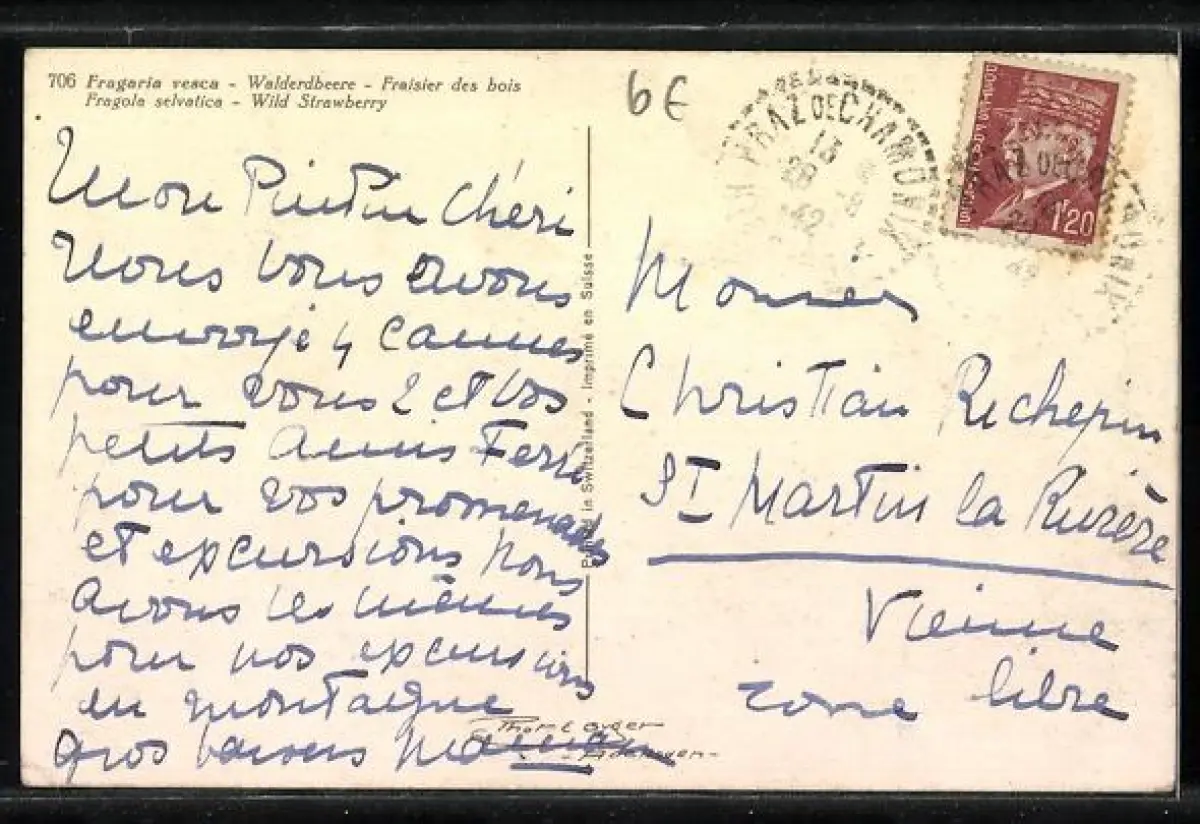 706 Fragaria vesca - Walderdbeere - Fraisier des bois
Fragola selvatica - Wild Strawberry
6€
PRAZ DE CHAMONIX
13
28 -8
42
1F20
Mon Pintin Chéri
Nous vous avons
envoyé 4 Cannes
pour vous 2 et vos
petits amis Ferri
pour vos promenades
et excursions Nous
avons les mêmes
pour nos excursions
en montaigne
gros baisers Maman
Printed in Switzerland - Imprimé en Suisse
Monsieur
Christian Richepin
St Martin la Rivière
Vienne
zone libre